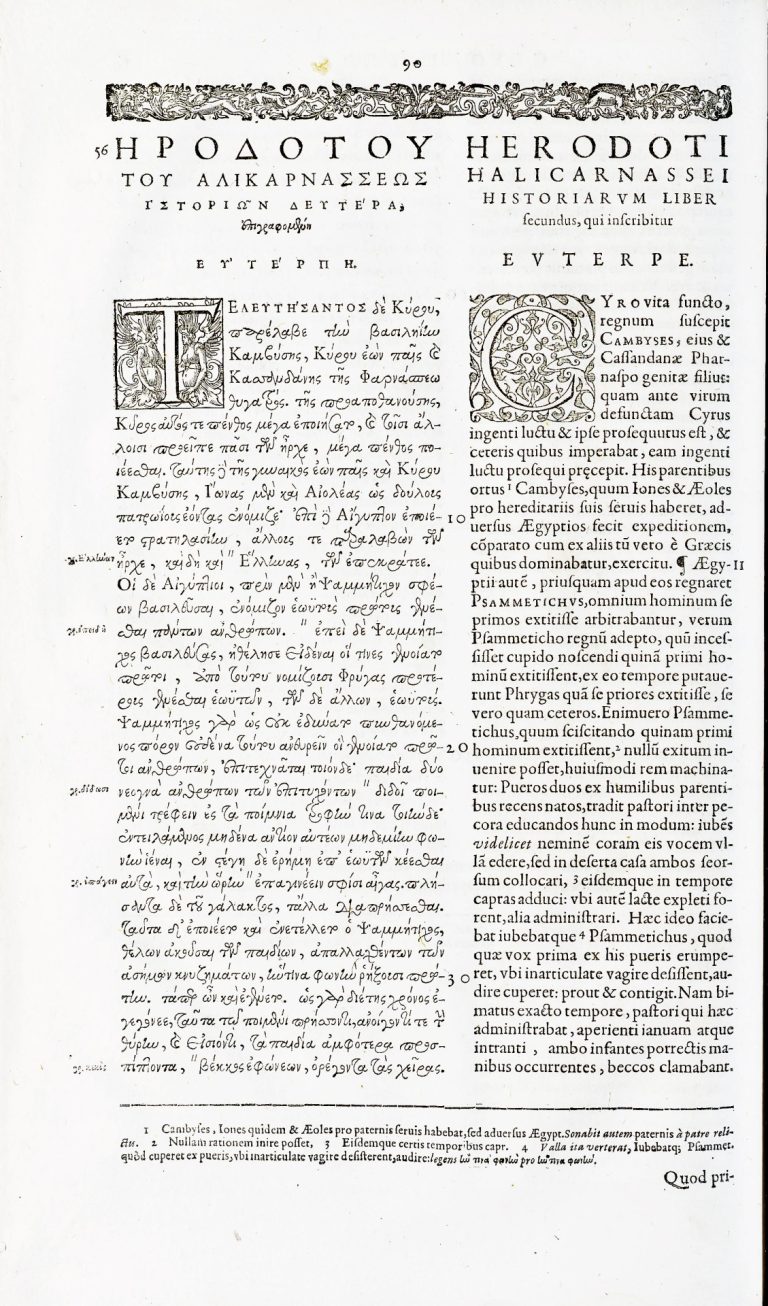 90
56 ΗΡΟΔΟΤΟΥ
ΤΟΥ ΑΛΙΚΑΡΝΑΣΣΕΩΣ
ΙΣΤΟΡΙΩ͂Ν ΔΕΥΤΕΊΡΑ,
ἐπιγραφομένη
ΕΥ᾽ΤΕΊΡΠΗ.
ΤΕΛΕΥΤΗΊΣΑΝΤΟΣ δὲ Κύρου,
παρέλαβε τὴν βασιληίην
Καμβύσης, Κύρου ἐὼν παῖς καὶ
Κασσανδάνης τῆς Φαρνάσπεω
θυγατρός. τῆς προαποθανούσης,
Κῦρος αὐτός τε πένθος μέγα ἐποιήσατο, καὶ τοῖσι ἄλ-
λοισι προεῖπε πᾶσι τῶν ἦρχε, μέγα πένθος ποι-
έεσθαι. ταύτης δὴ τῆς γυναικὸς ἐὼν παῖς καὶ Κύρου
Καμβύσης, Ἴωνας μὲν καὶ Αἰολέας ὡς δούλους
πατρωίους ἐόντας ἐνόμιζε· ἐπὶ δὲ Αἴγυπτον ἐποιέ- 10
ετο στρατηλασίην, ἄλλους τε παραλαβὼν τῶν
γρ. Ἑλλήνων ἦρχε, καὶ δὴ καὶ " Ἑλλήνων, τῶν ἐπεκράτεε.
Οἱ δὲ Αἰγύπτιοι, πρὶν μὲν ἢ Ψαμμήτιχον σφέ-
ων βασιλεῦσαι, ἐνόμιζον ἑωϋτοὺς πρώτους γενέ-
γρ. ἐπειδὴ σθαι πάντων ἀνθρώπων. " ἐπεὶ δὲ Ψαμμήτι-
χος βασιλεύσας, ἠθέλησε εἰδέναι οἵ τινες γενοίατο
πρῶτοι, ἀπὸ τούτου νομίζουσι Φρύγας προτέ-
ρους γενέσθαι ἑωϋτῶν, τῶν δὲ ἄλλων, ἑωϋτούς.
Ψαμμήτιχος γὰρ ὡς οὐκ ἐδύνατο πυνθανόμε-
νος πόρον οὐδένα τούτου ἀνευρεῖν οἳ γενοίατο πρῶ- 20
τοι ἀνθρώπων, ἐπιτεχνᾶται τοιόνδε· παιδία δύο
γρ. δίδωσι νεογνὰ ἀνθρώπων τῶν ἐπιτυχόντων " διδοῖ ποι-
μένι τρέφειν ἐς τὰ ποίμνια τροφήν τινα τοιήνδε·
ἐντειλάμενος μηδένα ἀντίον αὐτέων μηδεμίην φω-
νὴν ἱέναι, ἐν στέγῃ δὲ ἐρήμῃ ἐπ᾽ ἑωϋτῶν κέεσθαι
αὐτὰ, καὶ τὴν ὥρην " ἐπαγινέειν σφίσι αἶγας. πλή-
σαντα δὲ τοῦ γάλακτος, τἄλλα διαπρήσσεσθαι.
ταῦτα δ᾽ ἐποιέετο καὶ ἐνετέλλετο ὁ Ψαμμήτιχος,
θέλων ἀκοῦσαι τῶν παιδίων, ἀπαλλαχθέντων τῶν
ἀσήμων κνυζημάτων, ἥντινα φωνὴν ῥήξουσι πρώ- 30
την. τάπερ ὦν καὶ ἐγένετο. ὡς γὰρ διέτης χρόνος ἐ-
γεγόνεε, ταῦτα τῷ ποιμένι πρήσσοντι, ἀνοίγοντί τε τὴν
θύρην, καὶ εἰσιόντι, τὰ παιδία ἀμφότερα προσ-
πίπτοντα, " βέκκος ἐφώνεον, ὀρέγοντα τὰς χεῖρας.
HERODOTI
HALICARNASSEI
HISTORIARVM LIBER
secundus, qui inscribitur
EVTERPE.
CYRO vita functo,
regnum suscepit
CAMBYSES, eius &
Cassandanæ Phar-
naspo genitæ filius:
quam ante virum
defunctam Cyrus
ingenti luctu & ipse prosequutus est, &
ceteris quibus imperabat, eam ingenti
luctu prosequi pręcepit. His parentibus
ortus 1 Cambyses, quum Iones & Æoles
pro hereditariis suis seruis haberet, ad-
uersus Ægyptios fecit expeditionem,
cōparato cum ex aliis tū vero è Græcis
quibus dominabatur, exercitu. ¶ Ægy- II
ptii autē, priusquam apud eos regnaret
PSAMMETICHVS, omnium hominum se
primos extitisse arbitrabantur, verum
Psammeticho regnū adepto, quū inces-
sisset cupido noscendi quinā primi ho-
minū extitissent, ex eo tempore putaue-
runt Phrygas quā se priores extitisse, se
vero quam ceteros. Enimuero Psamme-
tichus, quum sciscitando quinam primi
hominum extitissent, 2 nullū exitum in-
uenire posset, huiusmodi rem machina-
tur: Pueros duos ex humilibus parenti-
bus recens natos, tradit pastori inter pe-
cora educandos hunc in modum: iubēs
videlicet neminē coram eis vocem vl-
lā edere, sed in deserta casa ambos seor-
sum collocari, 3 eisdemque in tempore
capras adduci: vbi autē lacte expleti fo-
rent, alia administrari. Hæc ideo facie-
bat iubebatque 4 Psammetichus, quod
quæ vox prima ex his pueris erumpe-
ret, vbi inarticulate vagire desissent, au-
dire cuperet: prout & contigit. Nam bi-
matus exacto tempore, pastori qui hæc
administrabat, aperienti ianuam atque
intranti, ambo infantes porrectis ma-
nibus occurrentes, beccos clamabant.
1 Cambyses, Iones quidem & Æoles pro paternis seruis habebat, sed aduersus Ægypt. Sonabit autem paternis à patre reli-
ctis. 2 Nullam rationem inire posset, 3 Eisdemque certis temporibus capr. 4 Valla ita verterat, Iubebatq; Psammet.
quòd cuperet ex pueris, vbi inarticulate vagire desisterent, audire: legens
Quod pri-